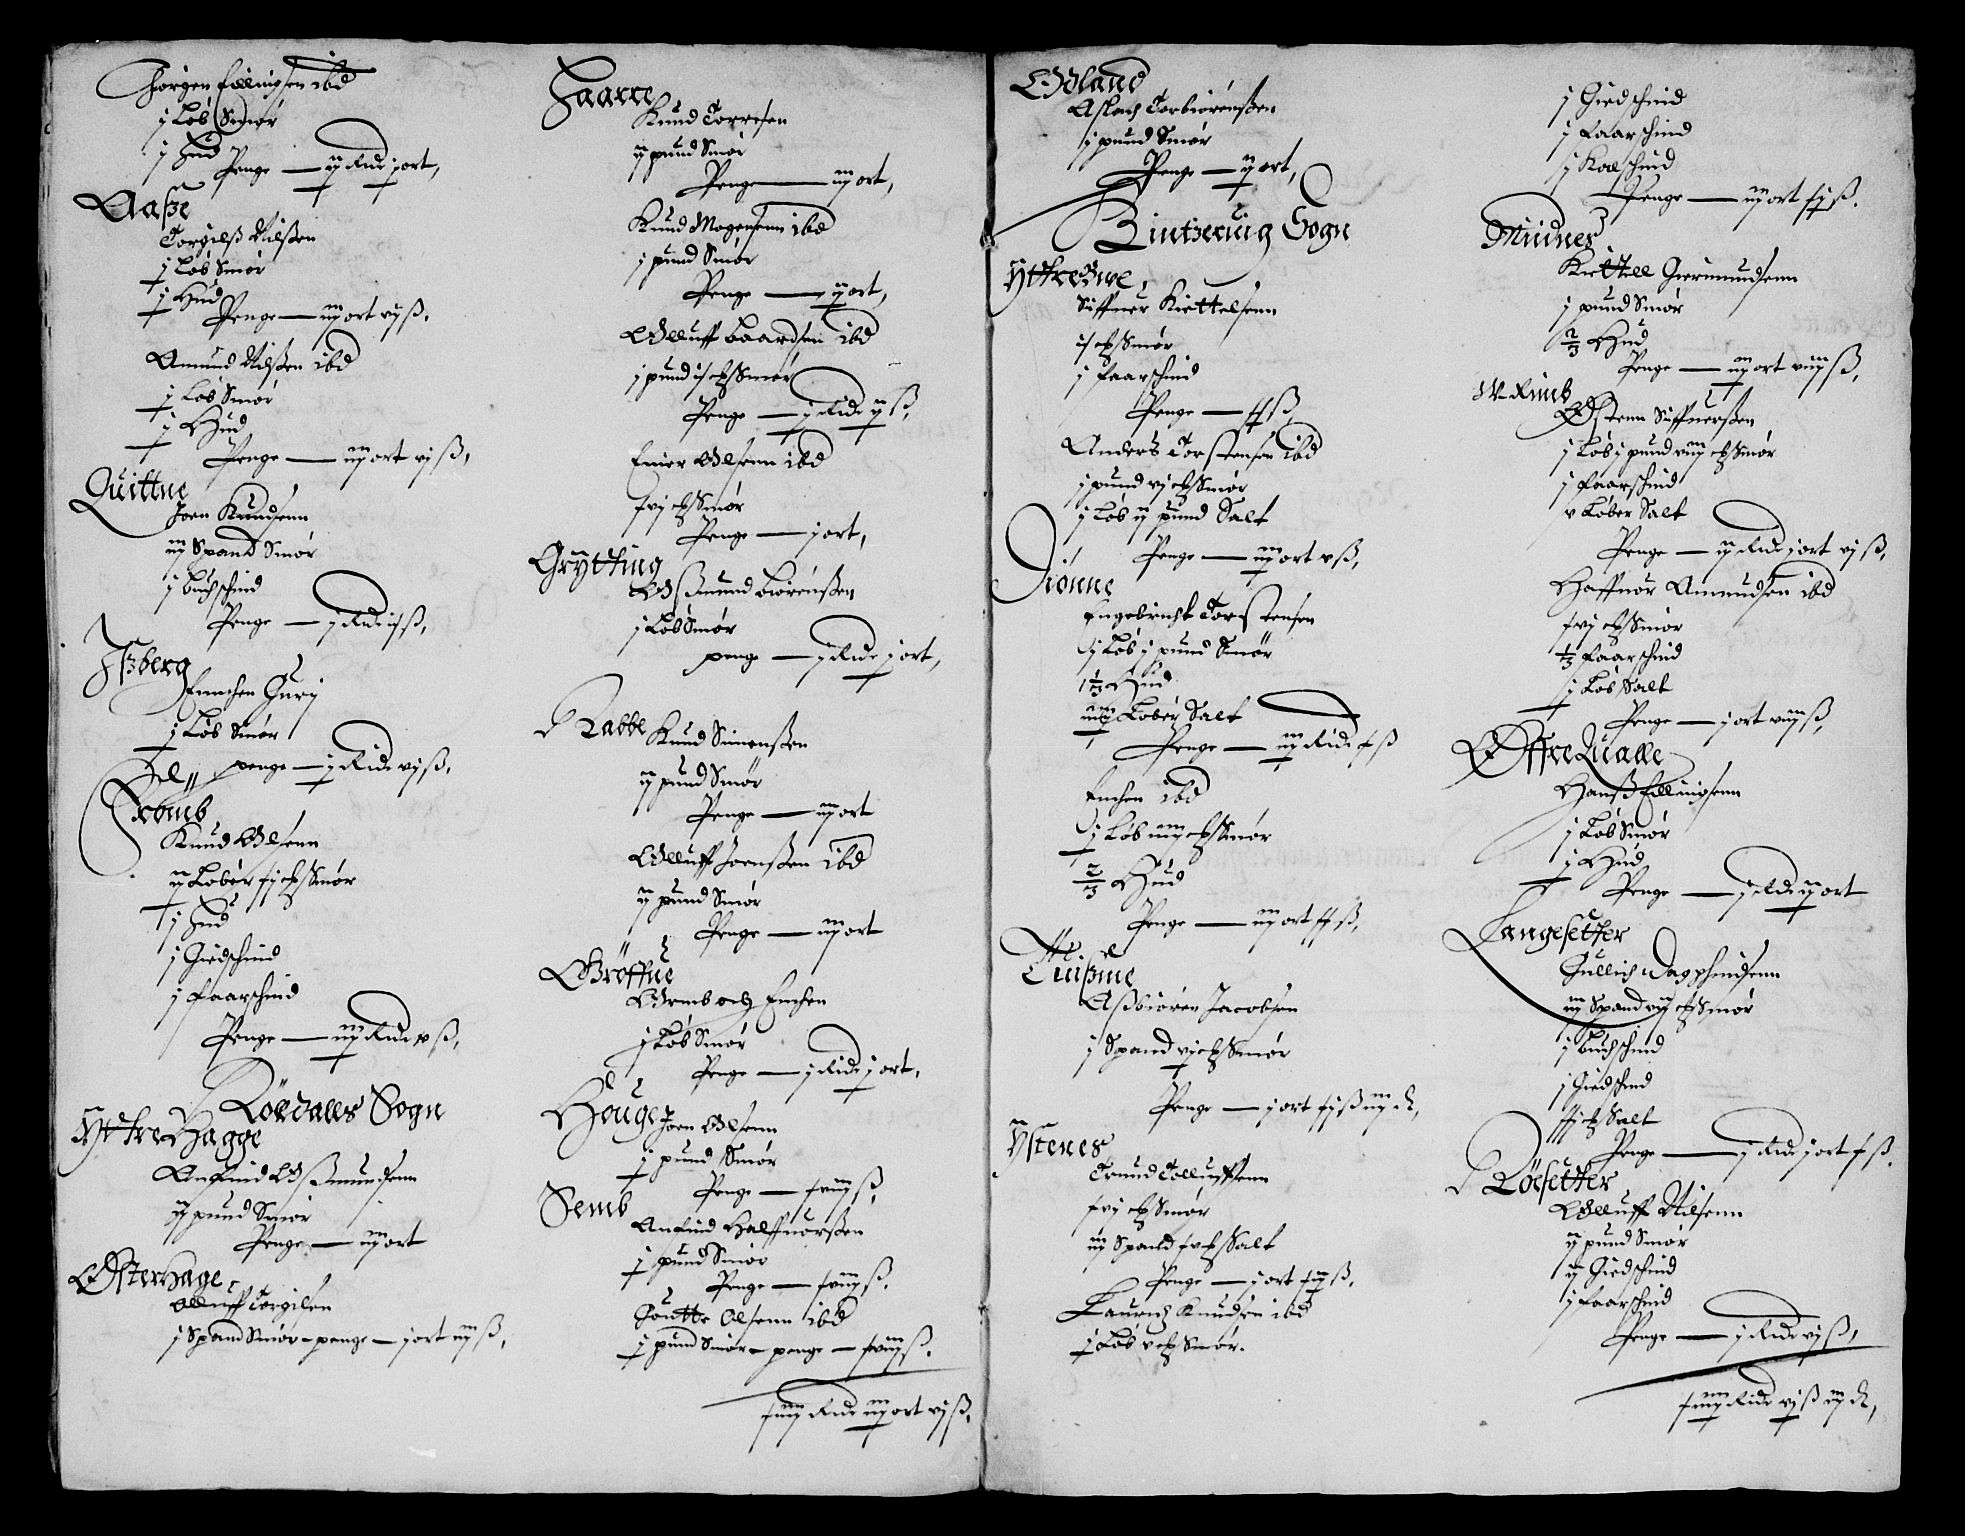 Jørgen Ellingsen ibd
j Løb Smør
j Hud
Penge — ij Rdr j ort,
Aaße
Torgilß Nilßen
j Løb Smør
j Hud
Penge — iij ort vij ß.
Amund Nilßen ibd
j Løb Smør
j Hud
Penge — iij ort vj ß,
Quittne
Joen Knudsenn
iij Spand Smør
j Buchschind
Penge — j Rdr
Jßberg
Ennchen Gurj
j Løb Smør
penge — j Rdr vj ß,
Knud Olsenn
ij Løber Smør
j Hud
j Giedschind
j Faarschind
Penge — iij Rdr ß,
Röldalls Sogn
Yttre Hagge
Anfind Oßmundsenn
ij pund Smør
Penge — iij ort
Øster Hage
Olluff Torgilsen
j Spand Smør — penge — j ort iij ß,
Haarre
Knud Torresen
ij pund Smør
Penge — iij ort,
Knud Mogensenn ibd
j pund Smør
Penge — ij ort,
Olluff Baardsen ibd
j pund Smør
Penge — j Rdr ij ß,
Einer Olsenn ibd
Smør
Penge — j ort,
Grytting
Oßmund Biørenßen
j Løb Smør
penge — j Rdr j ort,
Rabbe
Knud Simenßen
ij pund Smør
Penge — iij ort
Olluff Joenßen ibd
ij pund Smør
Penge — iij ort
Grøffue
Ormb och Enchen
j Løb Smør
Penge — j Rdr j ort,
Houge
Joen Olsenn
j pund Smør
Penge — xviij ß,
Semb
Anfind Halffuorßen
j pund Smør
Penge — xviij ß.
Goutte Olsenn ibd
j pund Smør — penge — xviij ß.
Rdr iij ort vj ß,
Ødland
Aslach Torbiørenßen
j pund Smør
Penge — ij ort,
Vintzeruig Sogn
Yttre
Siffuer Kiettelsenn
Smør
j Faarschind
Penge — ß
Anders Torstensen ibd
j pund vj Smør
j Løb ij pund Salt
Penge — iij ort v ß,
Tionne
Engebricht Torstensen
j Løb j pund Smør
1 1/3 Hud
Løber Salt
Penge — iij Rdr x ß
Enchen ibd
j Løb Smør
2/3 Hud
Penge — iij ort ß,
Tuißme
Aßbiören Jacobsen
j Spand vj Smør
Penge — j ort ß iij
Ystenes
Trund Tolluffsenn
Smør
iij Spand Salt
Penge — j ort ß,
Lauritz Knudsen ibd
j Løb v Smør.
j Giedschind
j Faarschind
j Kalschind
Penge — iij ort ß.
Midnes
Kiettell Giermundsenn
j pund Smør
2/3 Hud
Penge — iij ort viij ß,
Østenn Siffuerßen
j Løb j pund Smør
j Faarschind
v Løber Salt
Penge — ij Rdr j ort vj ß,
Haffuor Amundsen ibd
Smør
1/3 Faarschind
j Løb Salt
Penge — j ort viij ß,
Øffre Qualle
Hanß Ellingsenn
j Løb Smør
j Hud
Penge — j Rdr ij ort
Langesetter
Gullich Dagphindsenn
iij Spand Smør
j Buchschind
j Giedschind
Salt
Penge — j Rdr j ort x ß.
Röesetter
Olluff Nilsenn
ij pund Smør
ij Giedschind
j Faarschind
Penge — j Rdr vj ß,
Rdr vj ß iij